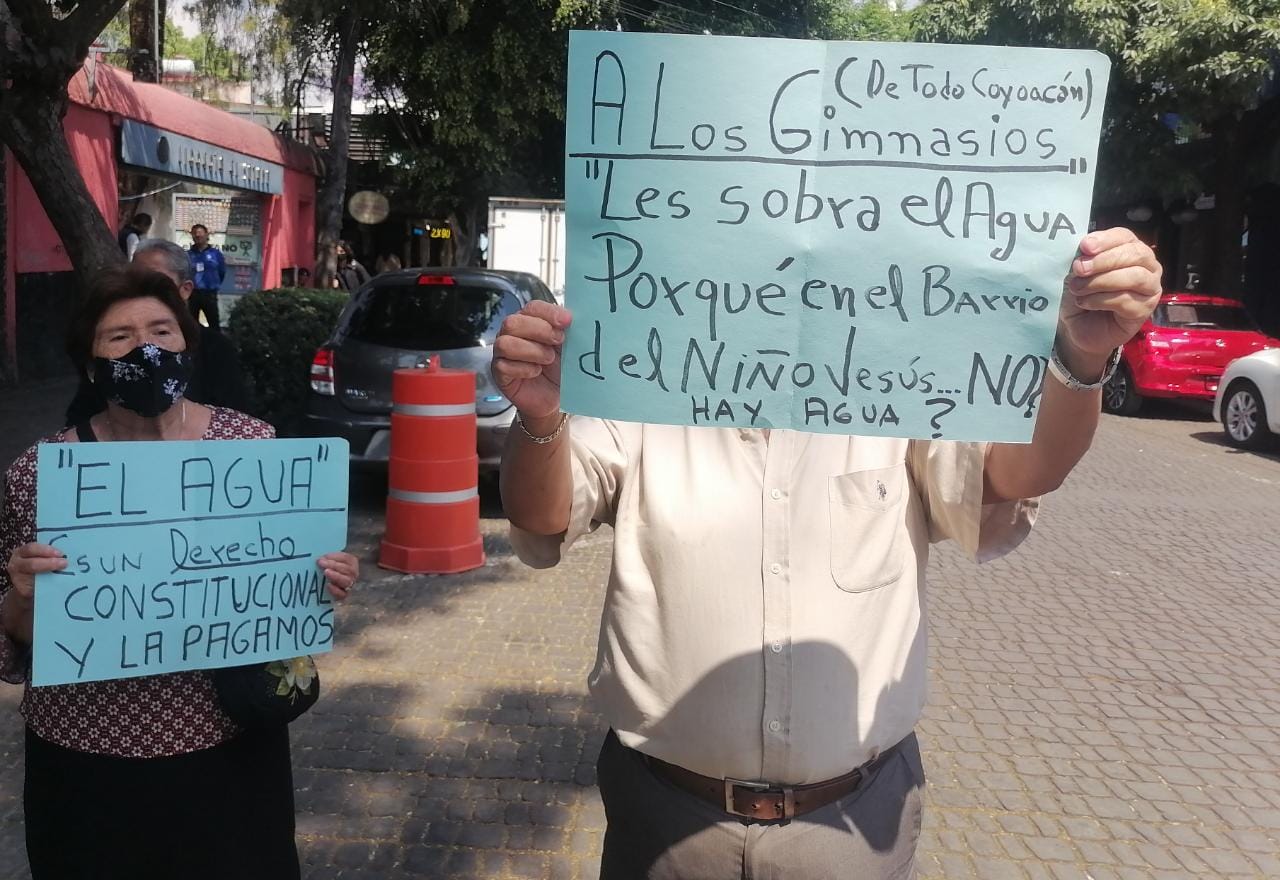 A Los Gimnasios (De Todo Coyoacán)
"Les sobra el Agua"
Porqué en el Barrio
del Niño Jesús... NO?
HAY AGUA?
"EL AGUA"
Es un Derecho
CONSTITUCIONAL
Y LA PAGAMOS
NO